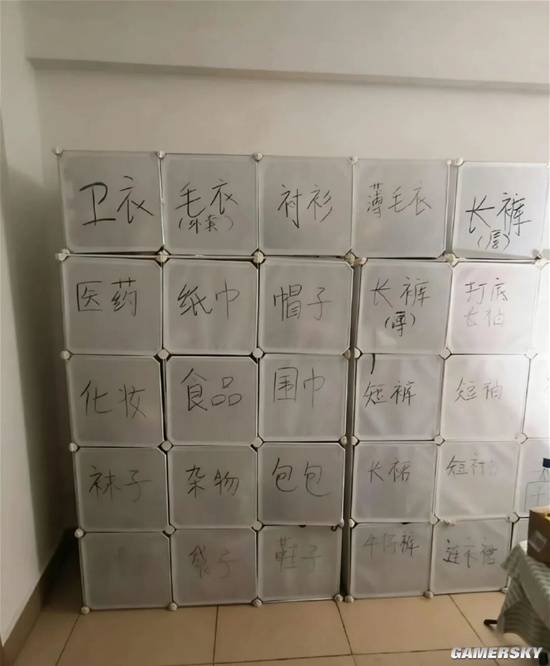 卫衣
毛衣
(外套)
衬衫
薄毛衣
长裤
(厚)
医药
纸巾
帽子
长裤
(薄)
打底
长袖
化妆
食品
围巾
短裤
短袖
袜子
杂物
包包
长裙
短裙
袋子
鞋子
牛仔裤
连衣裙
GAMERSKY